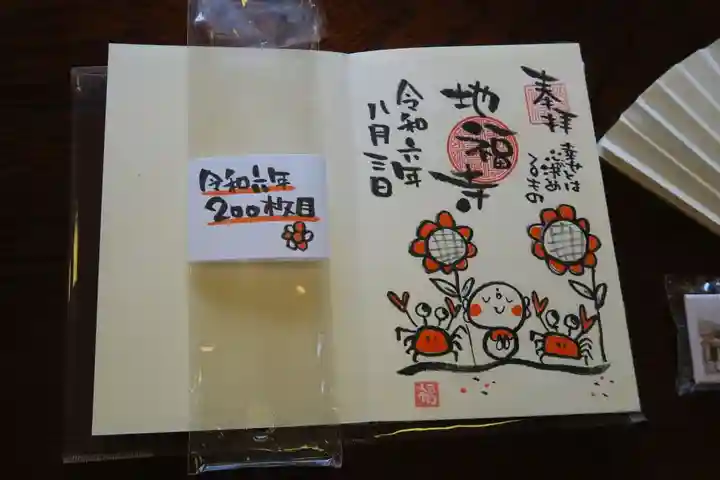 奉拝
幸せとは
心が決め
るもの
地福寺
令和六年
八月三日
福
令和六年
200枚目